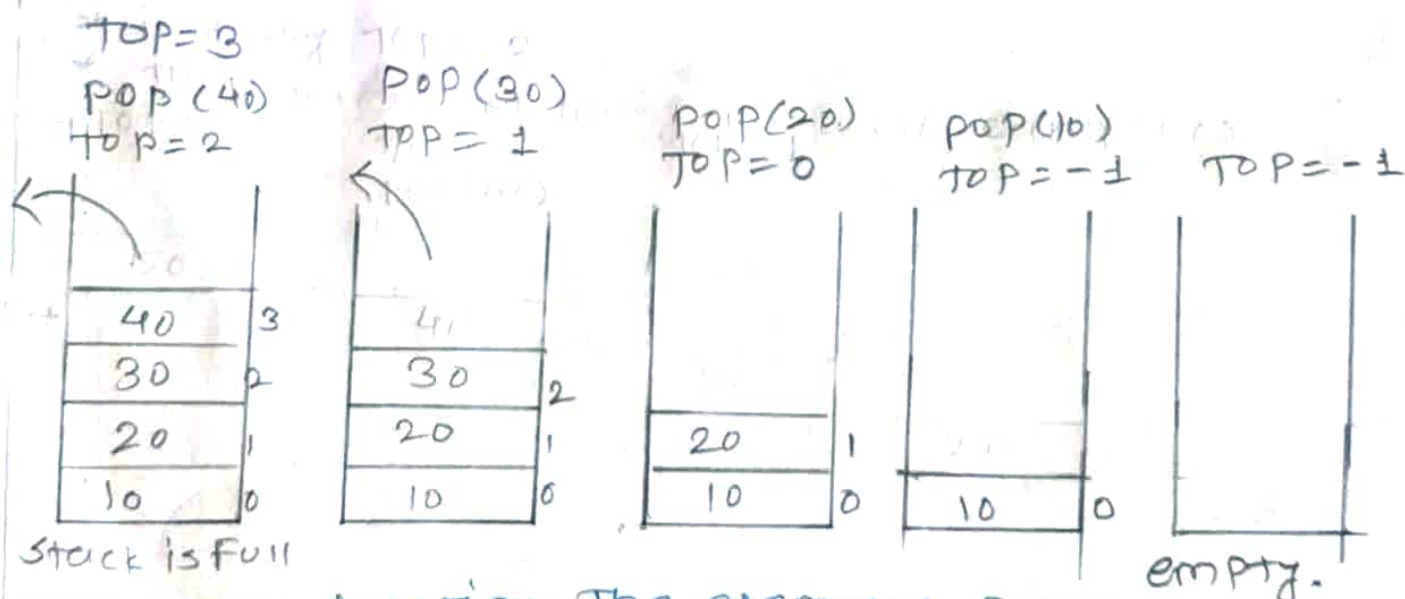 TOP= 3
POP (40)
top= 2
40 3
30 2
20 1
10 0
Stack is Full
POP(30)
TOP= 1
30 2
20 1
10 0
POP(20)
TOP= 0
20 1
10 0
POP(10)
TOP= -1
10 0
TOP= -1
empty.